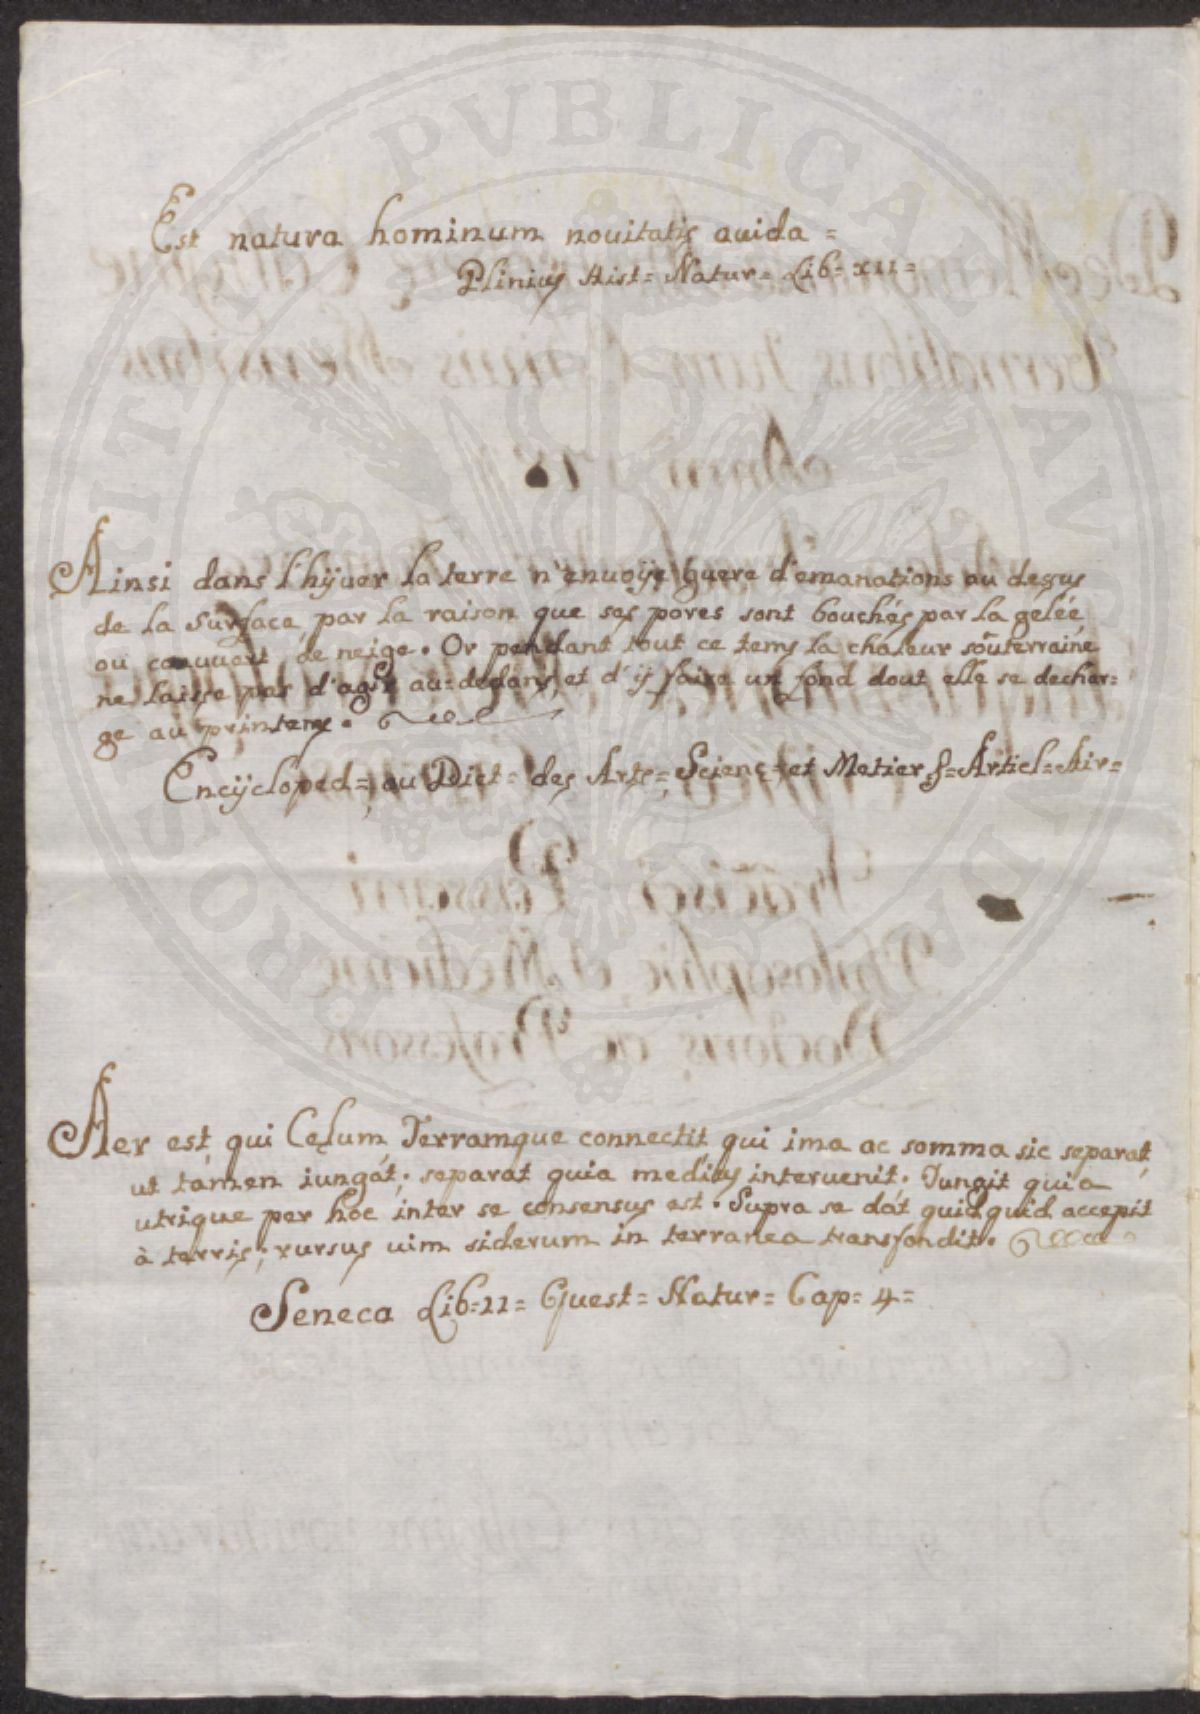 Est natura hominum nouitatis auida =
Plinius Hist= Natur= Lib= XII=
Ainsi dans l'hijuer la terre n'enuoije guere d'emanations au dessus
de la surface, par la raison que ses pores sont bouchés par la gelée,
ou couuert de neige. Or pendant tout ce tems la chaleur soûterraine
ne laisse pas d'agir au=dedans, et d'ij faire un fond dout elle se dechar=
ge au printems.
Encijcloped=, ou Dict= des Arts=, Scienc= et Metiers= Articl= Air=
Aer est, qui Cęlum, Terramque connectit, qui ima ac somma sic separat,
ut tamen iungat; separat quia medius interuenit. Jungit quia
utrique per hoc inter se consensus est. Supra se dat quidquid accepit
à terris; rursus uim siderum in terranea transfondit.
Seneca Lib=11= Quest= Natur= Cap= 4=